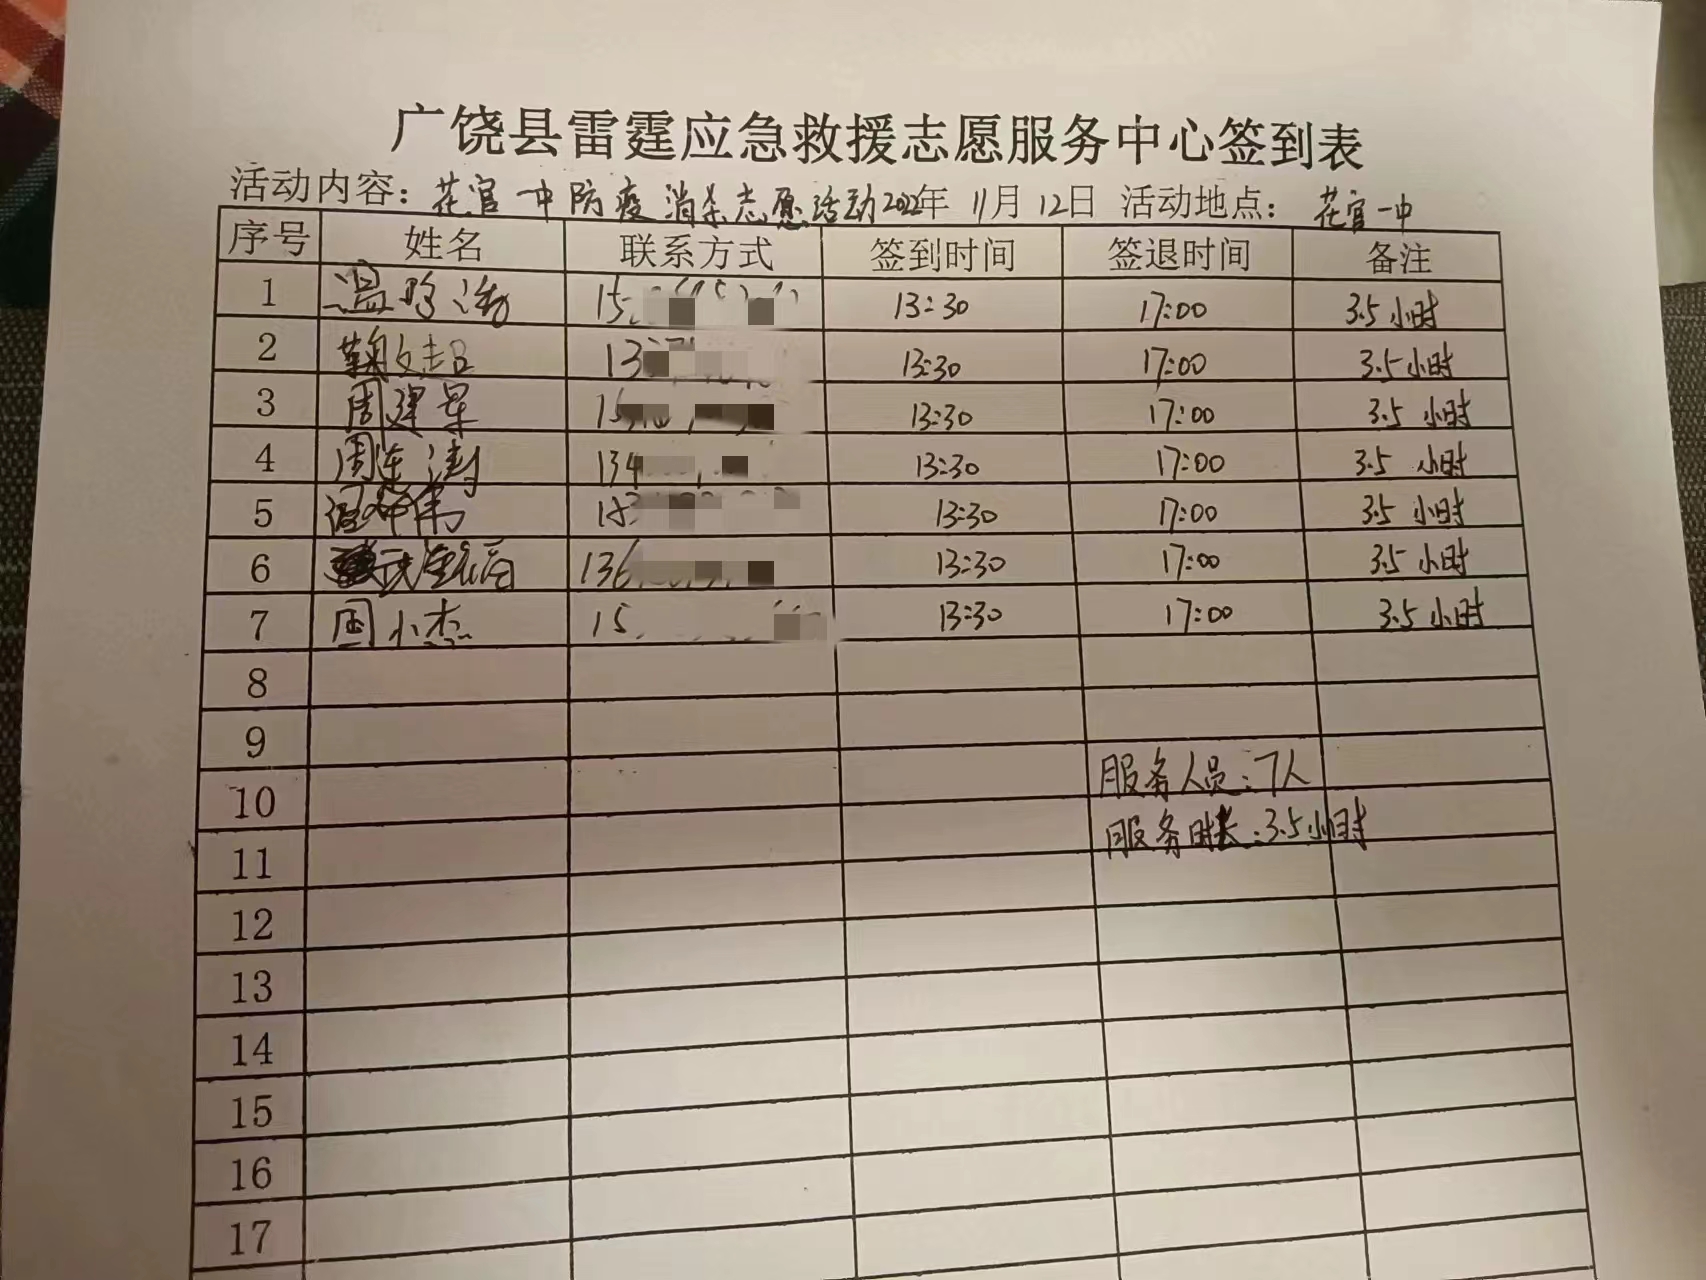 广饶县雷霆应急救援志愿服务中心签到表
活动内容：花官一中防疫消杀志愿活动2022年 11月 12日 活动地点：花官一中
序号 姓名 联系方式 签到时间 签退时间 备注
1 温 15 13:30 17:00 3.5小时
2 13 13:30 17:00 3.5小时
3 周建军 15 13:30 17:00 3.5小时
4 周 134 13:30 17:00 3.5小时
5 13:30 17:00 3.5小时
6 136 13:30 17:00 3.5小时
7 周小杰 15 13:30 17:00 3.5小时
8
9
10 服务人员：7人
11 服务时长：3.5小时
12
13
14
15
16
17